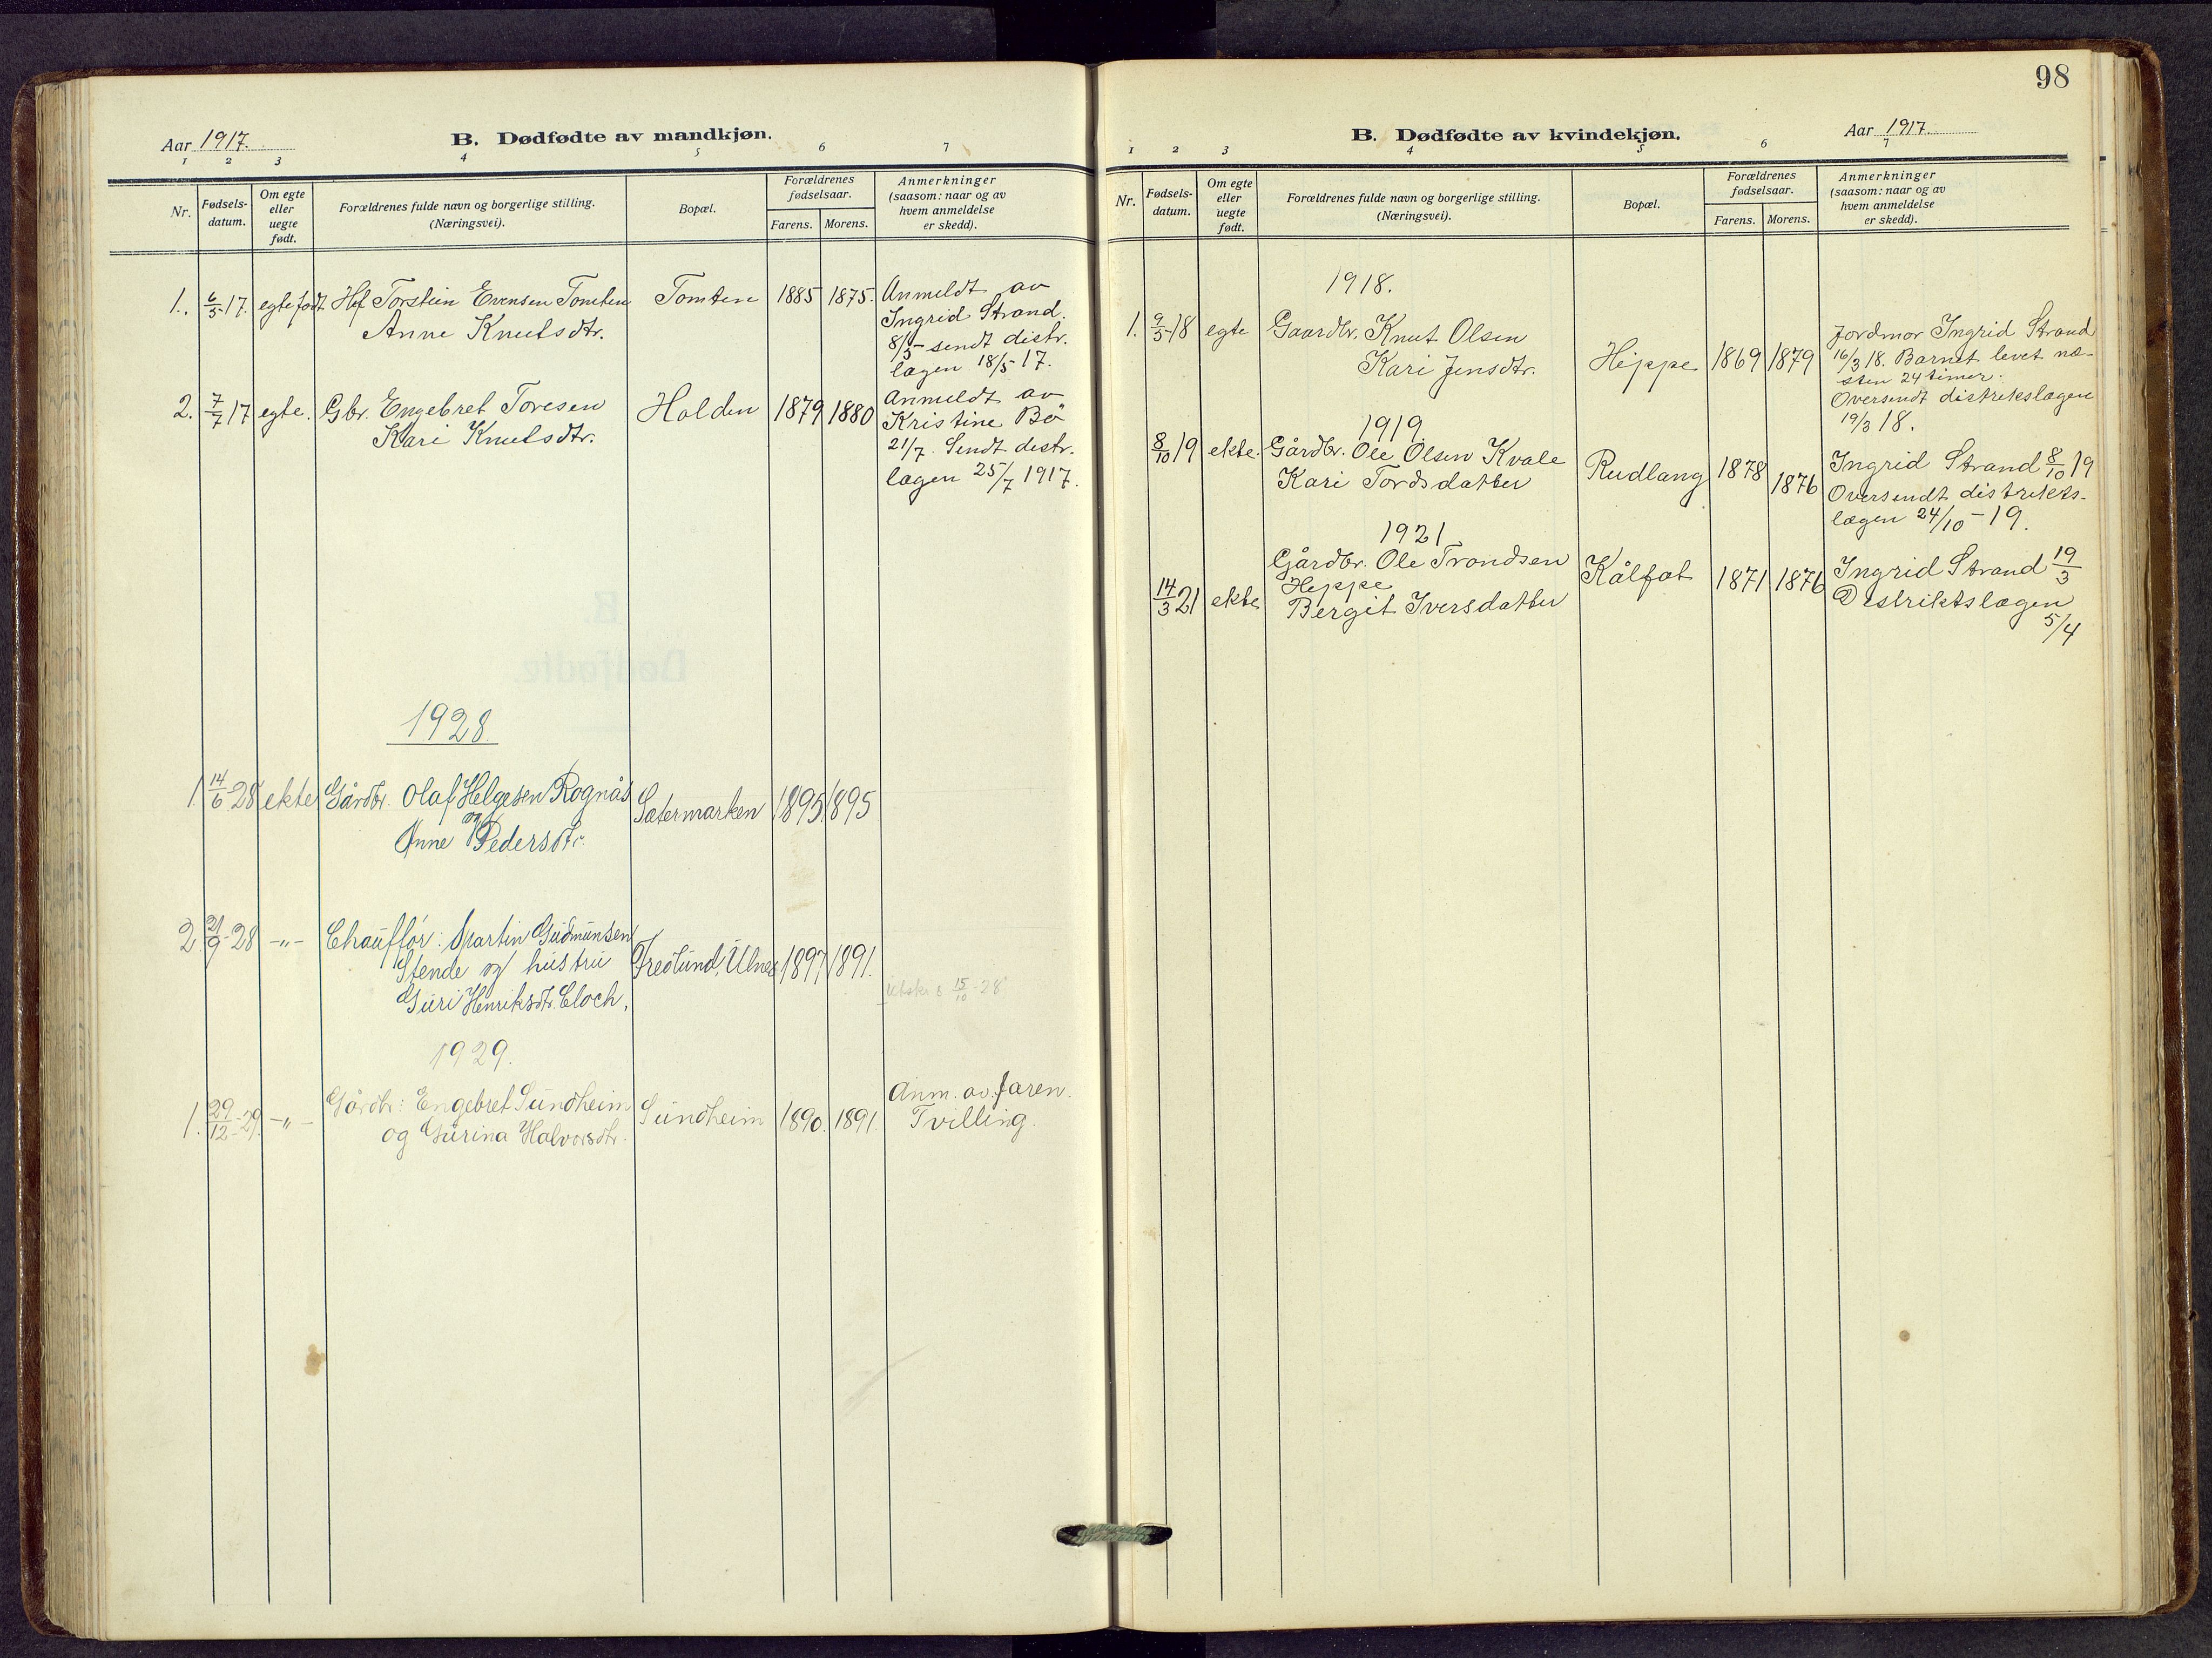 98
Aar 1917.
B. Dødfødte av mandkjøn.
1 2 3 4 5 6 7
Nr.
Fødsels-
datum.
Om egte
eller
uegte
født.
Forældrenes fulde navn og borgerlige stilling.
(Næringsvei).
Bopæl.
Forældrenes
fødselsaar.
Farens. Morens.
Anmerkninger
(saasom: naar og av
hvem anmeldelse
er skedd).
1. 6/5-17. egtefødt Hf Torstein Evensen Tomten Tomten 1885 1875. Anmeldt av
Anne Knutsdtr. Ingrid Strand.
8/5 - sendt distr.
lægen 18/5 17.
2. 7/7 17 egte. Gbr. Engebret Toresen Halden 1879 1880 Anmeldt av
Kari Knutsdtr. Kristine Bö
21/7. Sendt distr.
lægen 25/7 1917.
1928.
1. 14/6-28 ekte Gårdbr. Olaf Helgesen Rognås Sætermarken 1895 1895
og
Anne Pedersdtr.
2. 21/9-28 -"- Chauffør: Martin Gudmunsen
Stende og hustru Fredlund, Ulnes 1897 1891.
Guri Henriksdtr. Cloch. 15/10-28
1929.
1. 29/12-29. -"- Gårdbr: Engebret Sundheim Sundheim 1890. 1891. Anm. av faren.
og Gurina Halvorsdtr. Tvilling.
B. Dødfødte av kvindekjøn.
Aar 1917.
1 2 3 4 5 6 7
Nr.
Fødsels-
datum.
Om egte
eller
uegte
født.
Forældrenes fulde navn og borgerlige stilling.
(Næringsvei).
Bopæl.
Forældrenes
fødselsaar.
Farens. Morens.
Anmerkninger
(saasom: naar og av
hvem anmeldelse
er skedd).
1918.
1. 9/5-18 egte Gaardbr. Knut Olsen Heppe 1869 1879 Jordmor Ingrid Strand
Kari Jensdtr. 16/3 18. Barnet levet næ-
sten 24 timer.
Oversendt distrikslægen
19/3 18.
1919.
8/10 19 ekte. Gårdbr. Ole Olsen Kvale Rudlang 1878 1876 Ingrid Strand 8/10 19
Kari Tordsdatter Oversendt distrikts-
lægen 24/10 - 19.
1921
Gårdbr. Ole Trondsen Kålfat 1871 1876 Ingrid Strand 19/3
14/3 21 ekte Heppe Distriktslægen
Bergit Iversdatter 5/4